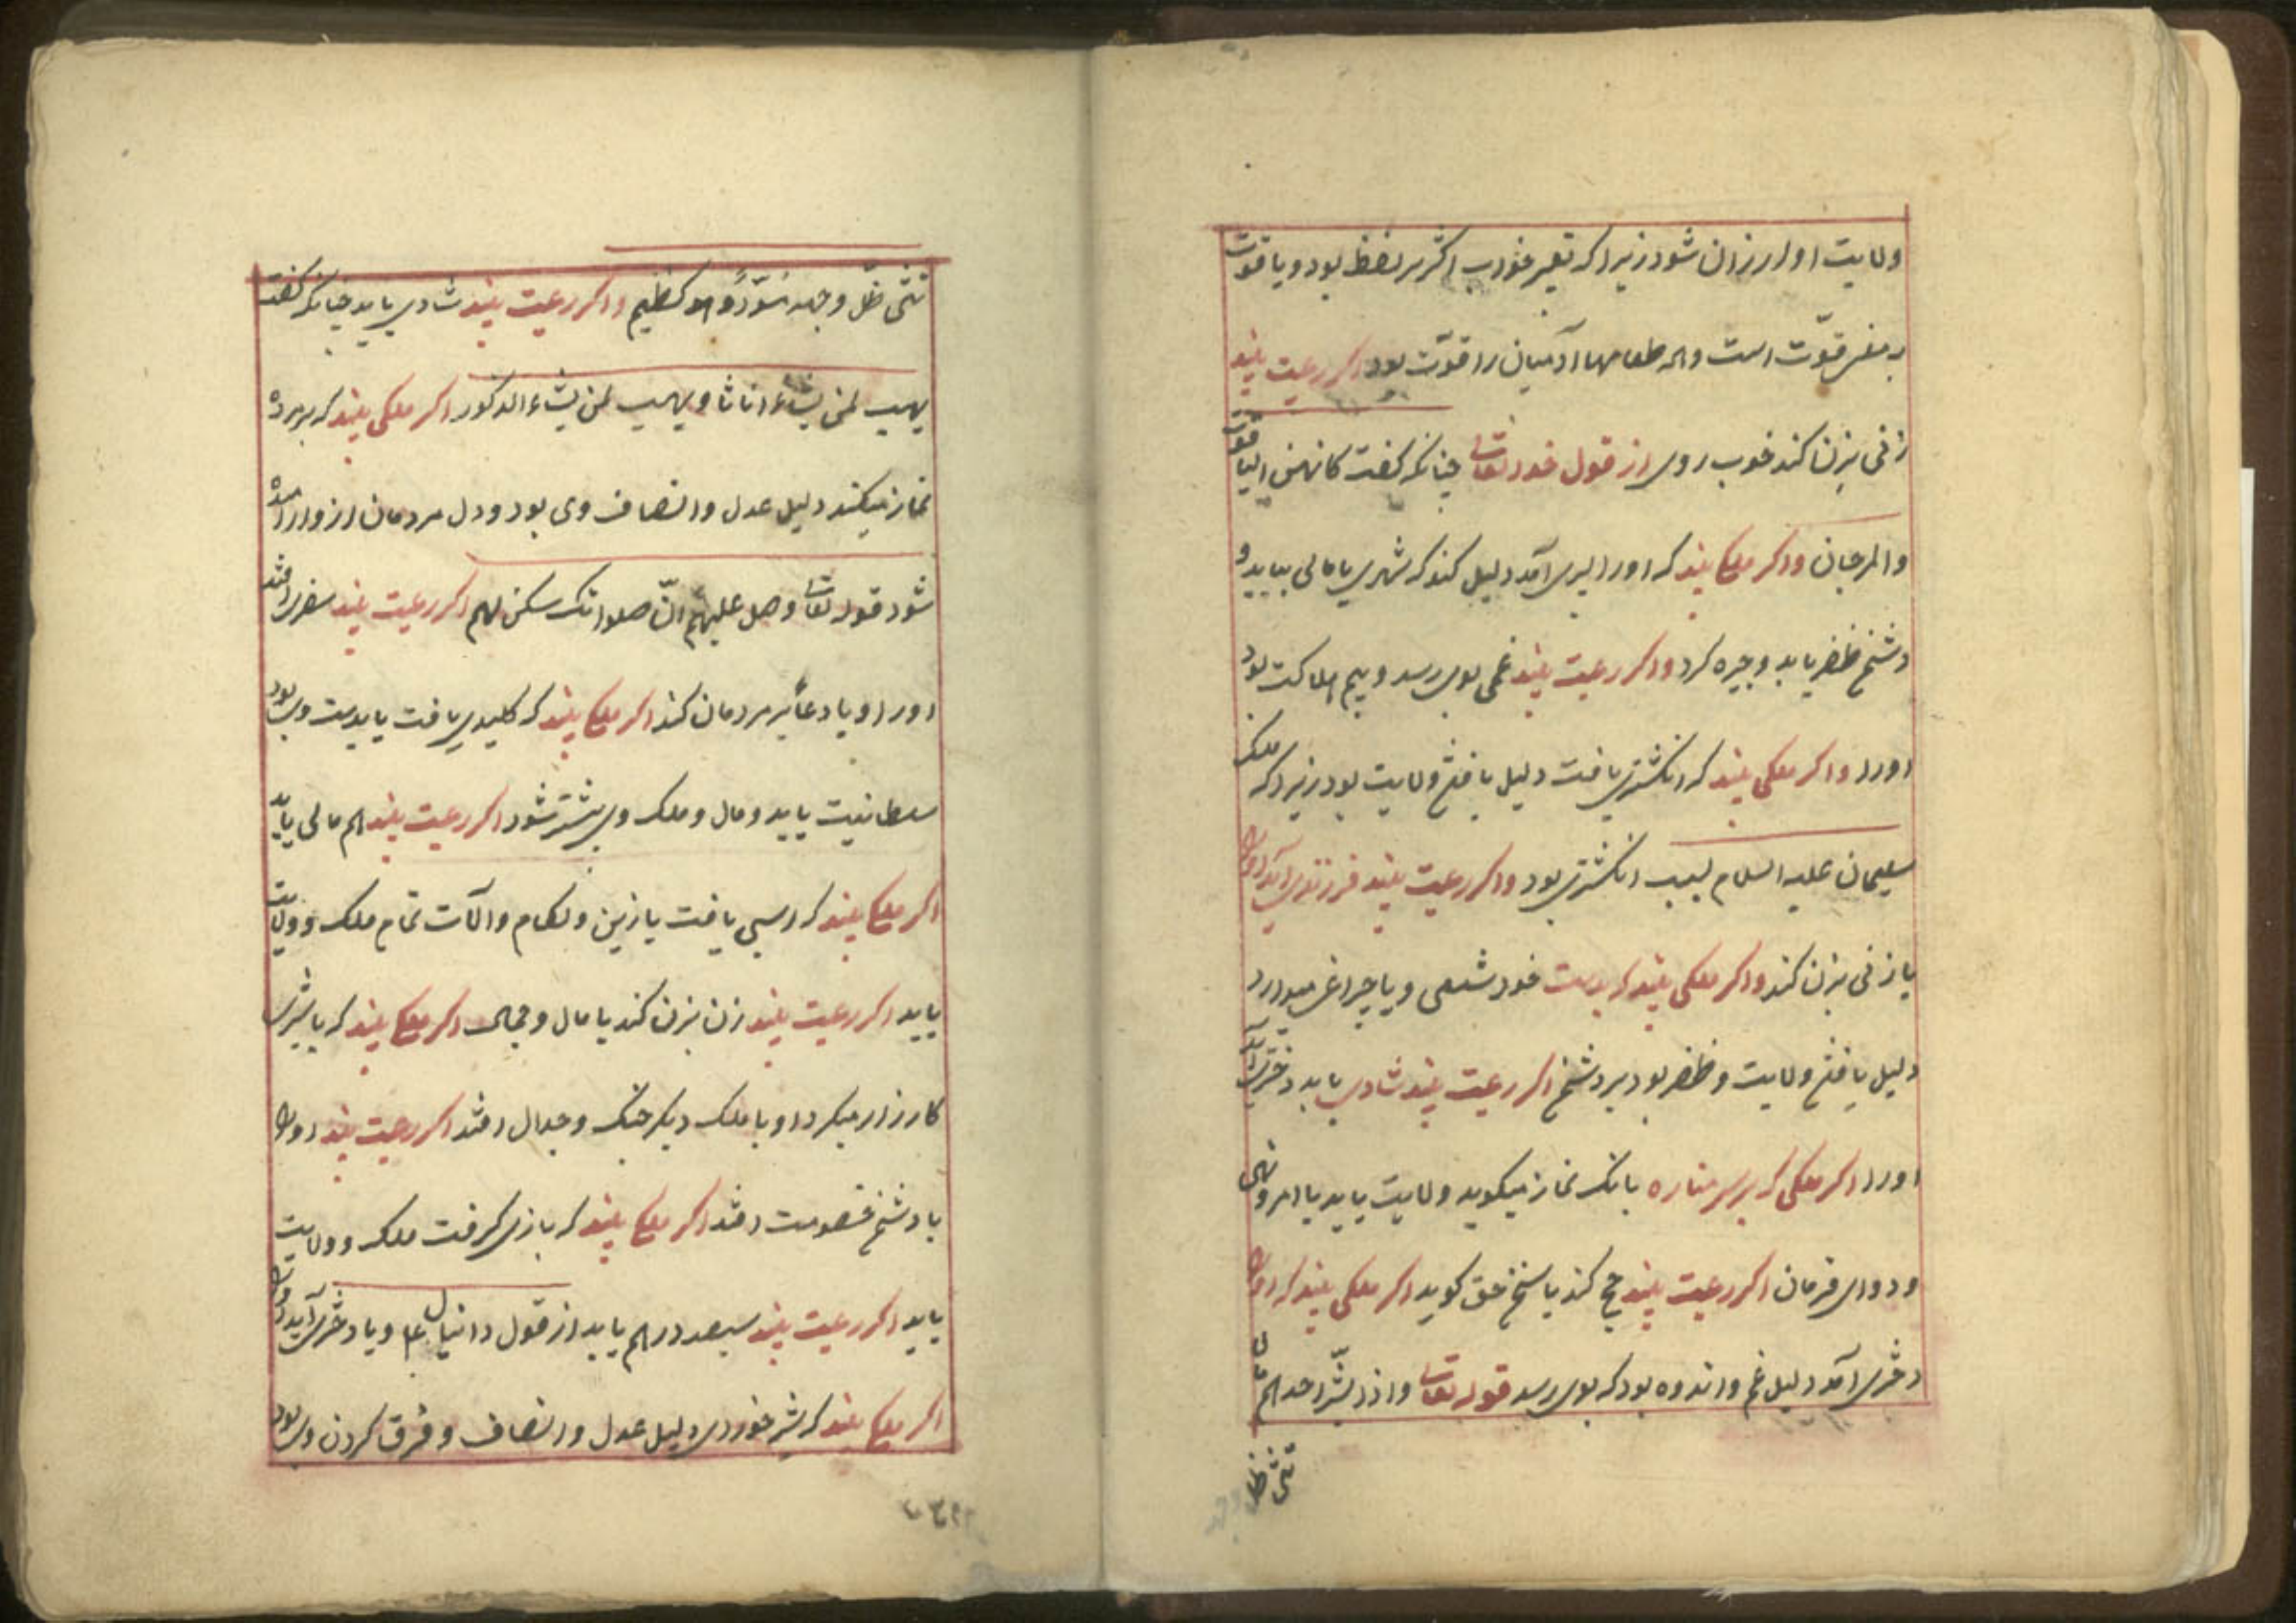 ولایت او ارزان شود زیرا که تعبیر خواب اکثر بر لفظ بود و یاقوت
بمعنی قوّت است و همه طعامها آدمیان را قوّت بود اکر رعیت بیند
زنی بزن کند خوب روی از قول خدا تعالی چنانکه کفت کانهن الیاقوت
والمرجان و اکر ملکی بیند که او را پسری آمد دلیل کند که شهری یا مالی بیابد و
دشمن ظفر یابد و چیره کردد و اکر رعیت بیند غمی بوی رسد و بیم هلاکت بود
او را و اکر ملکی بیند که انکشتری یافت دلیل یافتن ولایت بود زیرا که ملک
سلیمان علیه السلام بسبب انکشتری بود و اکر رعیت بیند فرزندی آید او را
یا زنی بزن کند و اکر ملکی بیند که بدست خود شمعی و یا چراغی میدارد
دلیل یافتن ولایت و ظفر بود بر دشمن اکر رعیت بیند شادی یابد دختری آید
او را اکر ملکی که بر سر مناره بانک نماز میکوید ولایت یابد با امر و نهی
و دوای فرمان اکر رعیت بیند حج کند یا سخن حق کوید اکر ملکی بیند که او را
دختری آمد دلیل غم و اندوه بود که بوی رسد قوله تعالی و اذا بشّر احدهم بالا
نثی ظل
نثی ظلّ وجهه مسوّدًا و هو کظیم و اکر رعیت بیند شادی یابد چنانکه کفت
یهب لمن یشاء اناثا و یهب لمن یشاء الذکور اکر ملکی بیند که بر مرده
نماز میکند دلیل عدل و انصاف وی بود و دل مردمان از و آرامیده
شود قوله تعالی وصل علیهم انّ صلواتک سکن لهم اکر رعیت بیند سفری افتد
او را و یا دعا بر مردمان کند اکر ملکی بیند که کلیدی یافت یا بدست وی بود
سلطانیت یابد و مال و ملک وی بیشتر شود اکر رعیت بیند هم مالی یابد
اکر ملکی بیند که اسبی یافت با زین و لکام و آلات تمام ملک و ولایت
یابد اکر رعیت بیند زن بزن کند با مال و جمال اکر ملکی بیند که با شیری
کارزار میکرد او با ملک دیکر جنک و جدال افتد اکر رعیت بیند او را
با دشمن خصومت افتد اکر ملکی بیند که بازی کرفت ملک و ولایت
یابد اکر رعیت بیند سیصد درهم یابد از قول دانیال ع م و یا دختری آید او را
اکر ملکی بیند که شیر خوردی دلیل عدل و انصاف و فرق کردن وی بود